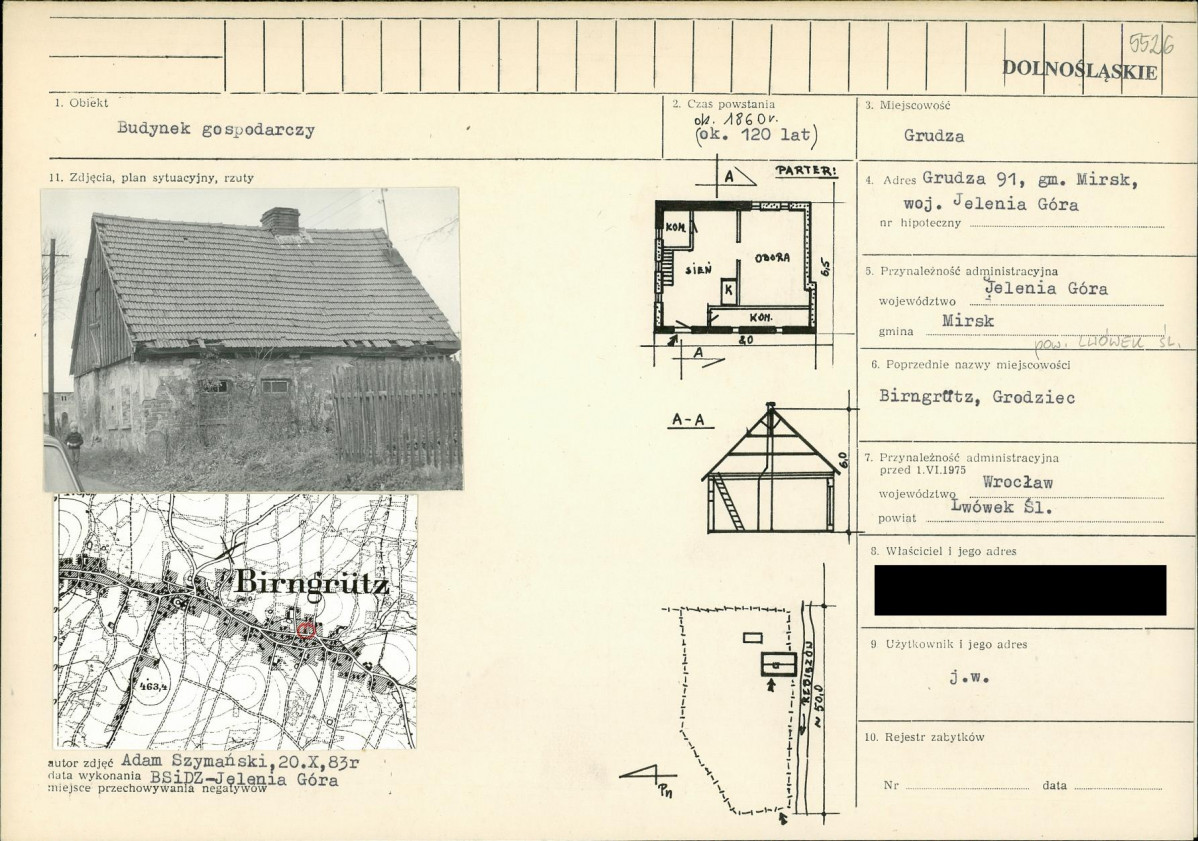 5526
DOLNOŚLĄSKIE
1. Obiekt
Budynek gospodarczy
2. Czas powstania
ok. 1860 r.
(ok. 120 lat)
3. Miejscowość
Grudza
11. Zdjęcia, plan sytuacyjny, rzuty
4. Adres Grudza 91, gm. Mirsk,
woj. Jelenia Góra
nr hipoteczny
5. Przynależność administracyjna
województwo Jelenia Góra
gmina Mirsk
pow. LWÓWEK ŚL.
6. Poprzednie nazwy miejscowości
Birngrütz, Grodziec
7. Przynależność administracyjna
przed 1.VI.1975
województwo Wrocław
powiat Lwówek Śl.
8. Właściciel i jego adres
9 Użytkownik i jego adres
j.w.
10. Rejestr zabytków
Nr data
PARTER:
A
KOM.
SIEŃ
OBORA
6,5
K
KOM.
8,0
A
A-A
6,0
REBISZÓW
~ 50,0
Pn
Birngrütz
463,4
autor zdjęć Adam Szymański, 20.X,83r
data wykonania BSiDZ-Jelenia Góra
miejsce przechowywania negatywów